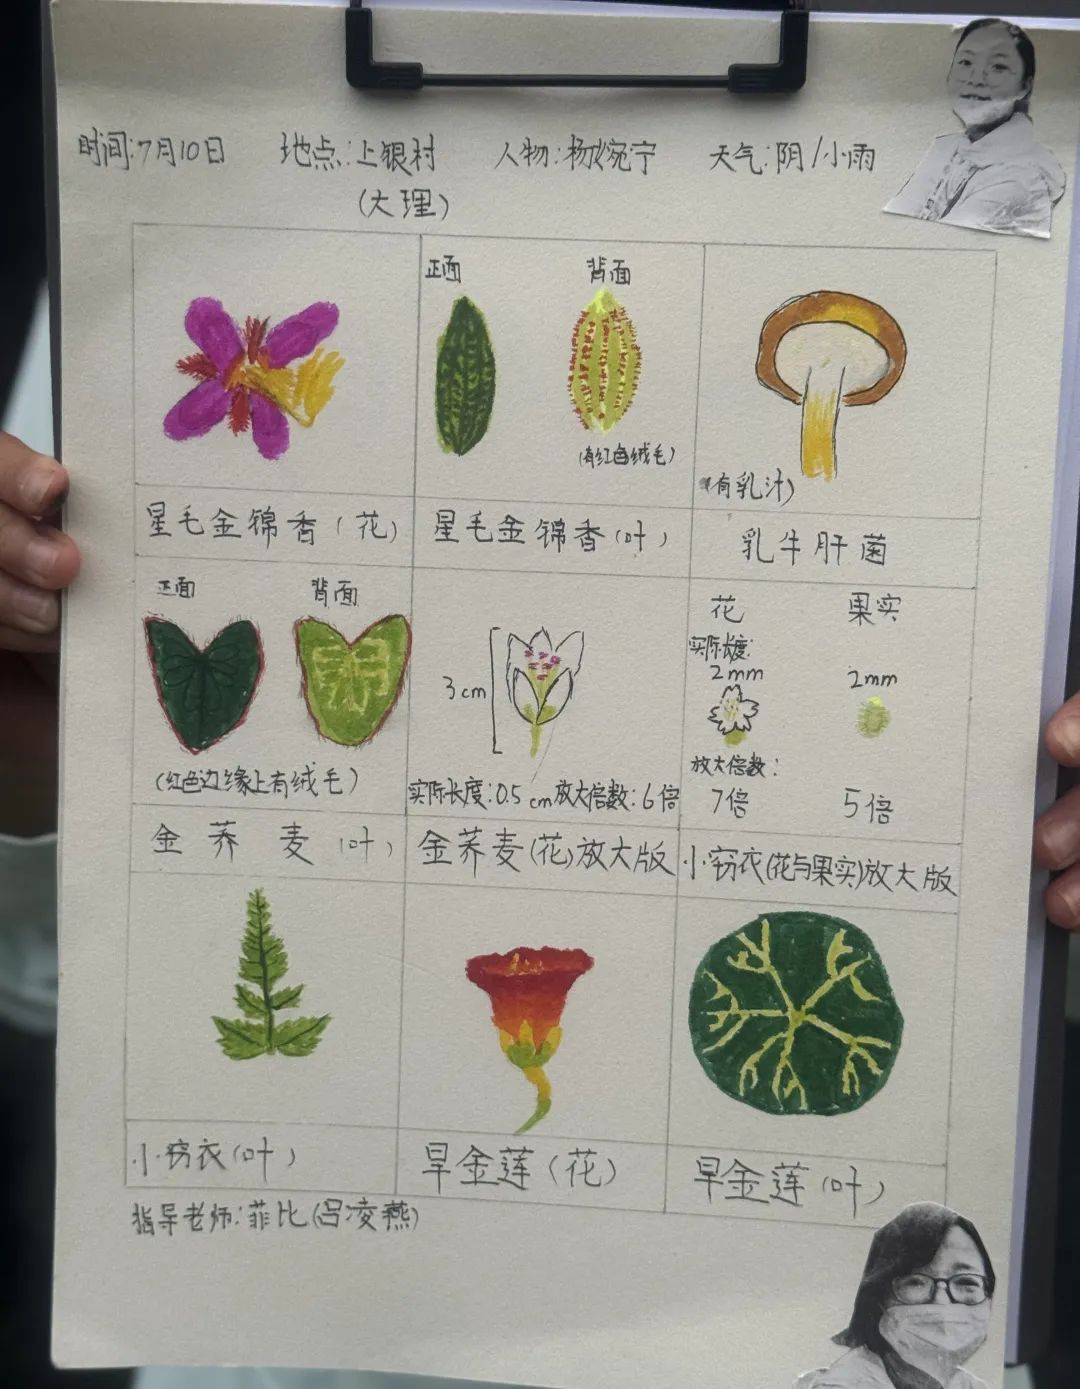 时间:7月10日 地点:上银村 人物:杨婉宁 天气:阴/小雨
(大理)
正面 背面
(有红色绒毛)
(有乳汁)
星毛金锦香(花) 星毛金锦香(叶) 乳牛肝菌
正面 背面
(红色边缘上有绒毛)
3cm
实际长度:0.5cm放大倍数:6倍
花 果实
实际长度:
2mm 2mm
放大倍数:
7倍 5倍
金荞麦(叶) 金荞麦(花)放大版 小窃衣(花与果实)放大版
小窃衣(叶) 旱金莲(花) 旱金莲(叶)
指导老师:菲比(吕凌燕)